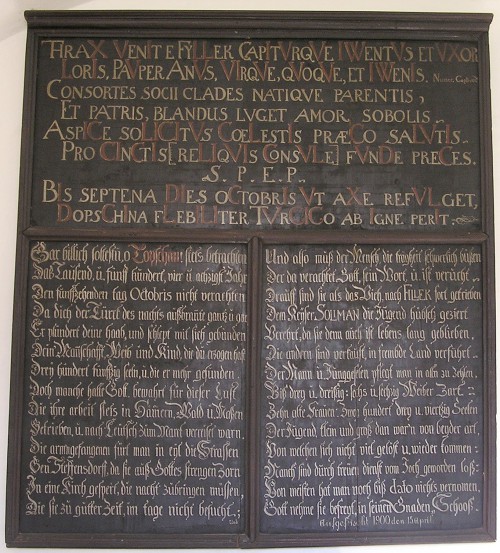 THRAX VENIT E FYLLEK CAPITVRQVE IWENTVS ET VXOR
LORIS, PAVPER ANVS, VIRQVE, QVOQVE, ET IWENIS.
CONSORTES SOCII CLADES NATIQVE PARENTIS,
ET PATRIS, BLANDUS LVGET AMOR SOBOLIS.
ASPICE SOLICITVS COELESTIS PRÆCO SALVTIS
PRO CINCTIS [RELIQVIS CONSVLE] FVNDE PRECES.
S. P. E. P.
BIS SEPTENA DIES OCTOBRIS VT AXE REFVLGET,
DOPSCHINA FLEBILITER TVRCICO AB IGNE PERIT.
Gar billich soltestu, o Topschau stets betrachten
Das Tausend, u fünff hundert, vier u achzigst Jahr
Den fünffzehenden tag Octobris nicht verachten
Da dich der Türck des nachts außbrante gantz u gar
Er plündert deine haab, und schlept mit sich gebunden
Dein Manschafft Weib und Kind, die du erzogen hast
Drey hundert fünffzig seeln, u die er mehr gefunden
Noch manche halbe Gott, bewahrt für dieser Last
Die ihre arbeit stets in Hämern, Wald u Massen
Getrieben, u nach Leutsch zum Marck verreiset warn
Die armgefangenen fürt man in eyl die Strassen
Gen Steffensdorf, da sie auß Gottes strengen Zorn
In eine Kirch gesperrt, die nacht zubringen müssen,
Die sie zu gutter Zeit, im tage nicht besucht.
Und also muß der Mensch die boßheit schwerlich büssen
Der da verachtet Gott, sein Wort, u ist verrucht
Drauff sind sie als das Vieh, nach FILLEK fort getrieben
Dem Keyser SOLIMAN die Jugend hübsch geziert
Verehrt, da sie denn auch ist lebens lang geblieben
Die andern sind verkaufft, in frembde Land verführt
Der Mann u Junggesellen pflegt man in alln zu zehlen
Biß drey u dreissig sechs u sechzig Weiber Zart
Zehn alte Frauen: Zwey hundert drey u viertzig Seelen
Der Jugend, klein und groß dan war'n von beyder art
Von welchen sich nicht viel gelöst u wieder kommen
Manch sind durch treuen dienst vom Joch geworden loß
Von meisten hat man noch biß dato nichts vernomen,
Gott nehme sie befreyt, in seinen Gnaden Schooß
Ausgefrischt 1900 den 15 April